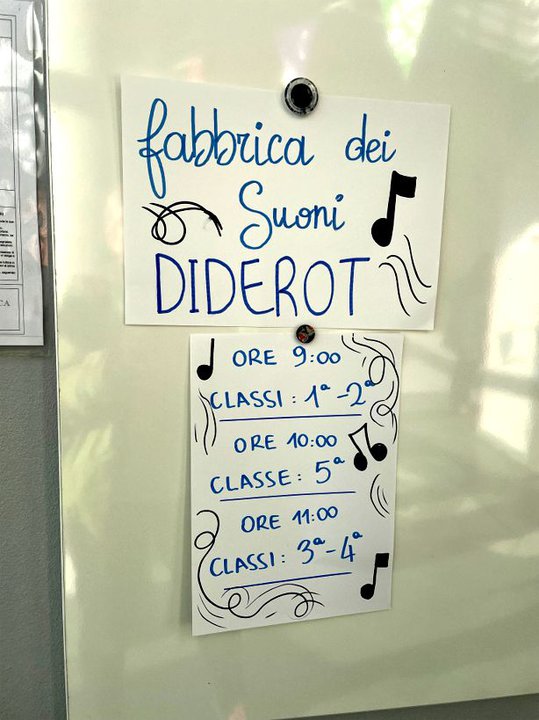 fabbrica dei
Suoni
DIDEROT
ORE 9:00
CLASSI: 1ª-2ª
ORE 10:00
CLASSE: 5ª
ORE 11:00
CLASSI: 3ª-4ª